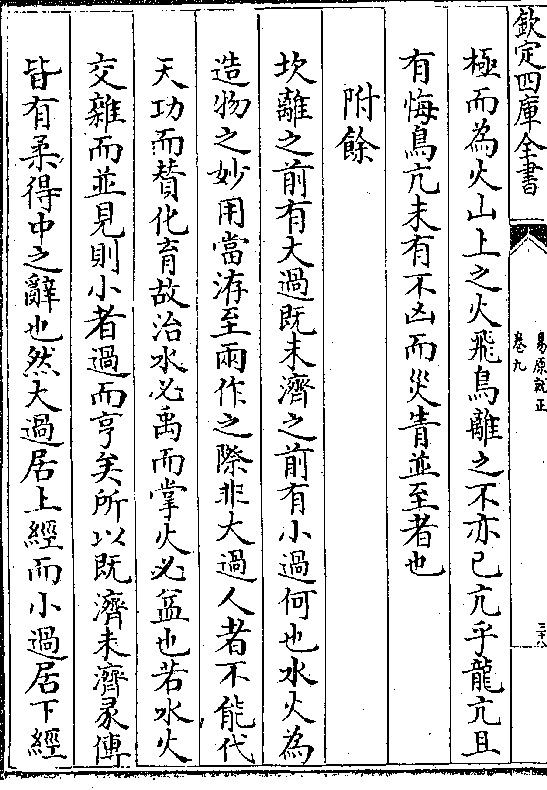 欽定四庫全書
易原就正
卷九
三十八
極而為火山上之火飛鳥離之不亦已亢乎龍亢且
有悔鳥亢未有不凶而災眚並至者也
附餘
坎離之前有大過既未濟之前有小過何也水火為
造物之妙用當洊至兩作之際非大過人者不能代
天功而贊化育故治水必禹而掌火必益也若水火
交雜而並見則小者過而亨矣所以既濟未濟彖傳
皆有柔得中之辭也然大過居上經而小過居下經